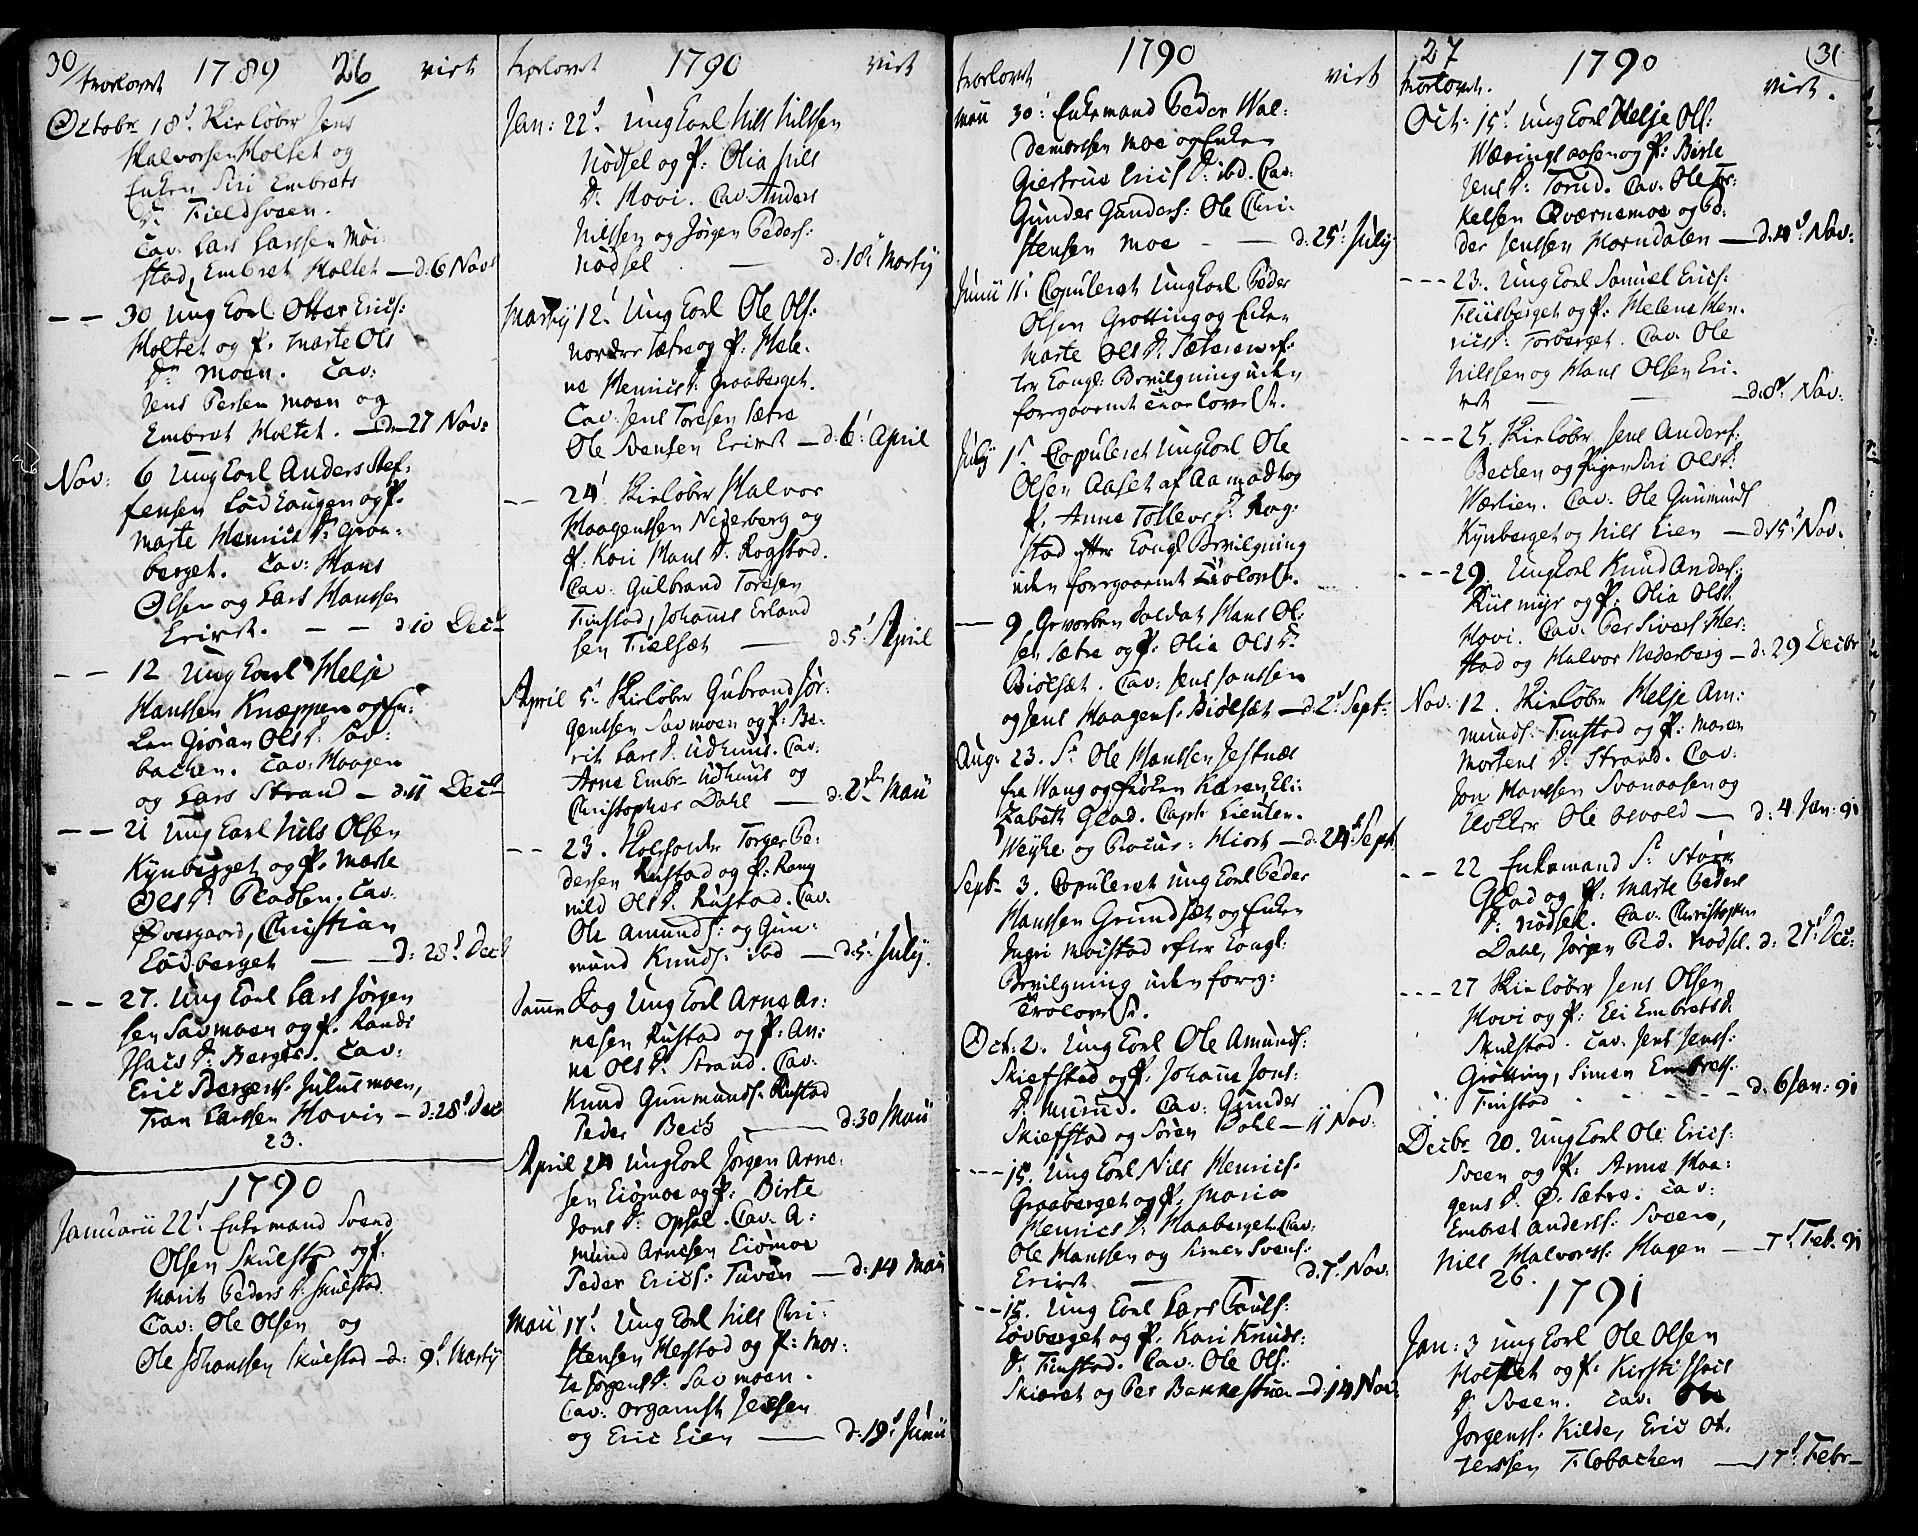 30 trolovet 1789 26 viet
Octobr 18d. Skieløber Jens
Halvorsen Holtet og
Enken Siri Embrets
D. Fieldsveen.
Cav: Lars Larssen Moi-
stad, Embret Holtet — d. 6 Nov
— — 30 Ung Karl Otter Erics:
Holtet og P. Marte Ols
Dr Moen. Cav:
Jens Persen Moen og
Embret Holtet. — d. 27 Nov:
Nov: 6 Ung Karl Anders Stef-
fensen Lødhougen og P.
Marte Henrics D. Graa-
berget. Cav: Hans
Olsen og Lars Hanssen
Erixst. — — d. 10 Dec
— — 12 Ung Karl Helje
Hanssen Knæppen og En-
ken Giøran Ols D. Sav-
backen. Cav: Haagen
og Lars Strand — d. 11 Dec
— — 21 Ung Karl Nils Olsen
Kynberget og P. Marte
Ols D. Pladsen. Cav.
Øvergaard, Christian
Lødberget — — d. 28d Dec
— — 27. Ung Karl Lars Jørgen
sen Savmoen og P. Randi
Isacs D. Berger. Cav:
Eric Bergerss. Julusmoen,
Fran Larssen Hovin — d. 28d Dec
23.
1790
Januarii 22d. Enkemand Svend
Olsen Skulstad og P.
Marit Peders D. Skulstad
Cav: Ole Olsen og
Ole Johanssen Skulstad — d. 9d Martij
trolovet 1790 viet
Jan: 22d. Ung Karl Nils Nilssen
Nødsel og P: Olia Nils
D. Hovi. Cav: Anders
Nilssen og Jørgen Peders:
Nødsel — d. 18 Martij
Martij 12. Ung Karl Ole Ols:
nordre Sætre og P. Hele-
na Henrics D. Graaberget.
Cav: Jens Toresen Sætre
Ole Svensen Erixst — d. 6 April
— — 24 Skieløber Halvor
Haagenssen Nederberg og
P. Kari Hans D. Rogstad.
Cav: Gulbrand Toresen
Finstad, Johannes Erland
sen Fielsæt — d. 5 April
April 5d Skieløber Gubrand Jør-
gensen Savmoen og P: Be-
rit Lars D. Udhuus. Cav:
Arne Embr. Udhuus og
Christopher Dahl — d. 2den Maii
— — 23. Holsholder Torger Pe-
dersen Rustad og P: Rang
nild Ols D. Rustad. Cav.
Ole Amunds: og Gun-
mund Knuds: ibd — d. 5 Julij.
Samme Dag Ung Karl Arne Ar-
nesen Rustad og P: An-
ne Ols D. Strand. Cav.
Knud Gunmunds. Rustad
Peder Bech — d. 30 Maii
April 24 Ung Karl Jørgen Arne-
sen Eiømoe og P: Birte
Jons D. Opsal. Cav. A-
mund Arnesen Eiømoe
Peder Erics: Tuven — d: 14 Maii
Maii 17d. Ung Karl Nils Chri-
stensen Herstad og P: Mar-
te Jørgens D. Savmoen.
Cav: Organist Jenssen
og Eric Eien — d: 19d Junii
trolovet 1790 viet
Maii 30: Enkemand Peder Wal-
demorsen Moe og Enken
Giertrue Erics D: ibd. Cav:
Gunder Gunders: Ole Chri-
stensen Moe — — d: 25d July
Junii 11. Copuleret Ung Karl Peder
Olsen Grøtting og Enken
Marte Ols D. Sæteren ef-
ter Kongl: Bevilgning uden
foregaaende Trolovelse.
July 1d Copuleret Ung Karl Ole
Olsen Aaset af Aamodt og
P. Anne Tollevs D. Rog-
stad efter Kongl Bevilgning
uden foregaaende Trolovelse.
— 9 Gevorben Soldat Hans Ol-
sen Sætre og P: Olia Ols D.
Biølsæt. Cav: Jens Janssen
og Jens Haagens. Biølsæt — d. 2d Sept.
Aug. 23. Sr Ole Hanssen Jestnæs
fra Wang og Frøken Karen Eli-
zabeth Glad. Capt: Lieuten.
Weyhe og Procur: Hiort — d. 24 Sept
Sept. 3. Copuleret Ung Karl Peder
Hanssen Grundsæt og Enken
Ingri Moistad efter Kongl:
Bevilgning uden foreg:
Trolovelse.
Oct: 2. Ung Karl Ole Amunds:
Skiefstad og P. Johanne Jons:
D. Murud. Cav: Gunder
Skiefstad og Søren Dahl — 11 Nov:
— — 15. Ung Karl Nils Henrics.
Graaberget og P. Maria
Henrics D. Haaberget. Cav:
Ole Hanssen og Simen Svens:
Erixst — d. 7d Nov:
— — 15. Ung Karl Lars Pouls:
Løvberget og P. Kari Knuds:
D. Finstad. Cav: Ole Ols:
Skiæret og Per Bakkestuen — d. 14 Nov:
27 trolovet. 1790 viet. 31
Oct: 15d Ung Karl Helje Ols:
Wæringsaasen og P: Birte
Jens D: Torud. Cav: Ole Tor-
kelsen Qværnemoe og Pe-
der Jenssen Horndalen — d. 11d Nov:
— — 23. Ung Karl Samuel Erics:
Fliisberget og P. Helene Hen-
rics D: Torberget. Cav: Ole
Nilssen og Hans Olsen Eri-
xst — — d. 8d Nov:
— — — 25. Skieløber Jens Anders:
Becken og Pigen Siri Ols D.
Wærlien. Cav: Ole Gunmunds
Kynberget og Nils Lien — d. 15 Nov.
— — — 29. Ung Karl Knud Anders:
Kiismyr og P: Olia Ols D.
Hovi. Cav: Per Sivers: Her-
stad og Halvor Nederberg — d. 29 Decibr
Nov: 12. Skieløber Helje Am-
munds: Finstad og P: Maren
Mortens D. Strand. Cav:
Jon Hanssen Svenaasen og
Ole Evold — d: 4 Jan: 91
— — 22 Enkemand Sr: Støre
Glad og P: Marte Peders
D. Nødsel. Cav: Christopher
Dahl, Jørgen Ped. Nødsel. d: 27d Dec:
— — — 27 Skieløber Jens Olsen
Hovi og P: Eli Embrets D.
Skulstad. Cav: Jens Jenss:
Grøtting, Simen Embretss:
Finstad — — — d. 6 Jan: 91
Decibr 20. Ung Karl Ole Erics:
Sveen og P: Anne Haa-
gens D. Ø: Sætre. Cav:
Embret Anderss: Sveen,
Nils Halvorss: Hagen — 7d Feb. 91
26.
1791
Jan: 3 Ung Karl Ole Olsen
Holstet og P. Kirsti Isacs
D. Sveen. Cav: Ole
Jørgenss: Kilde, Eric Ot-
terssen Flobacken — 17d Febr